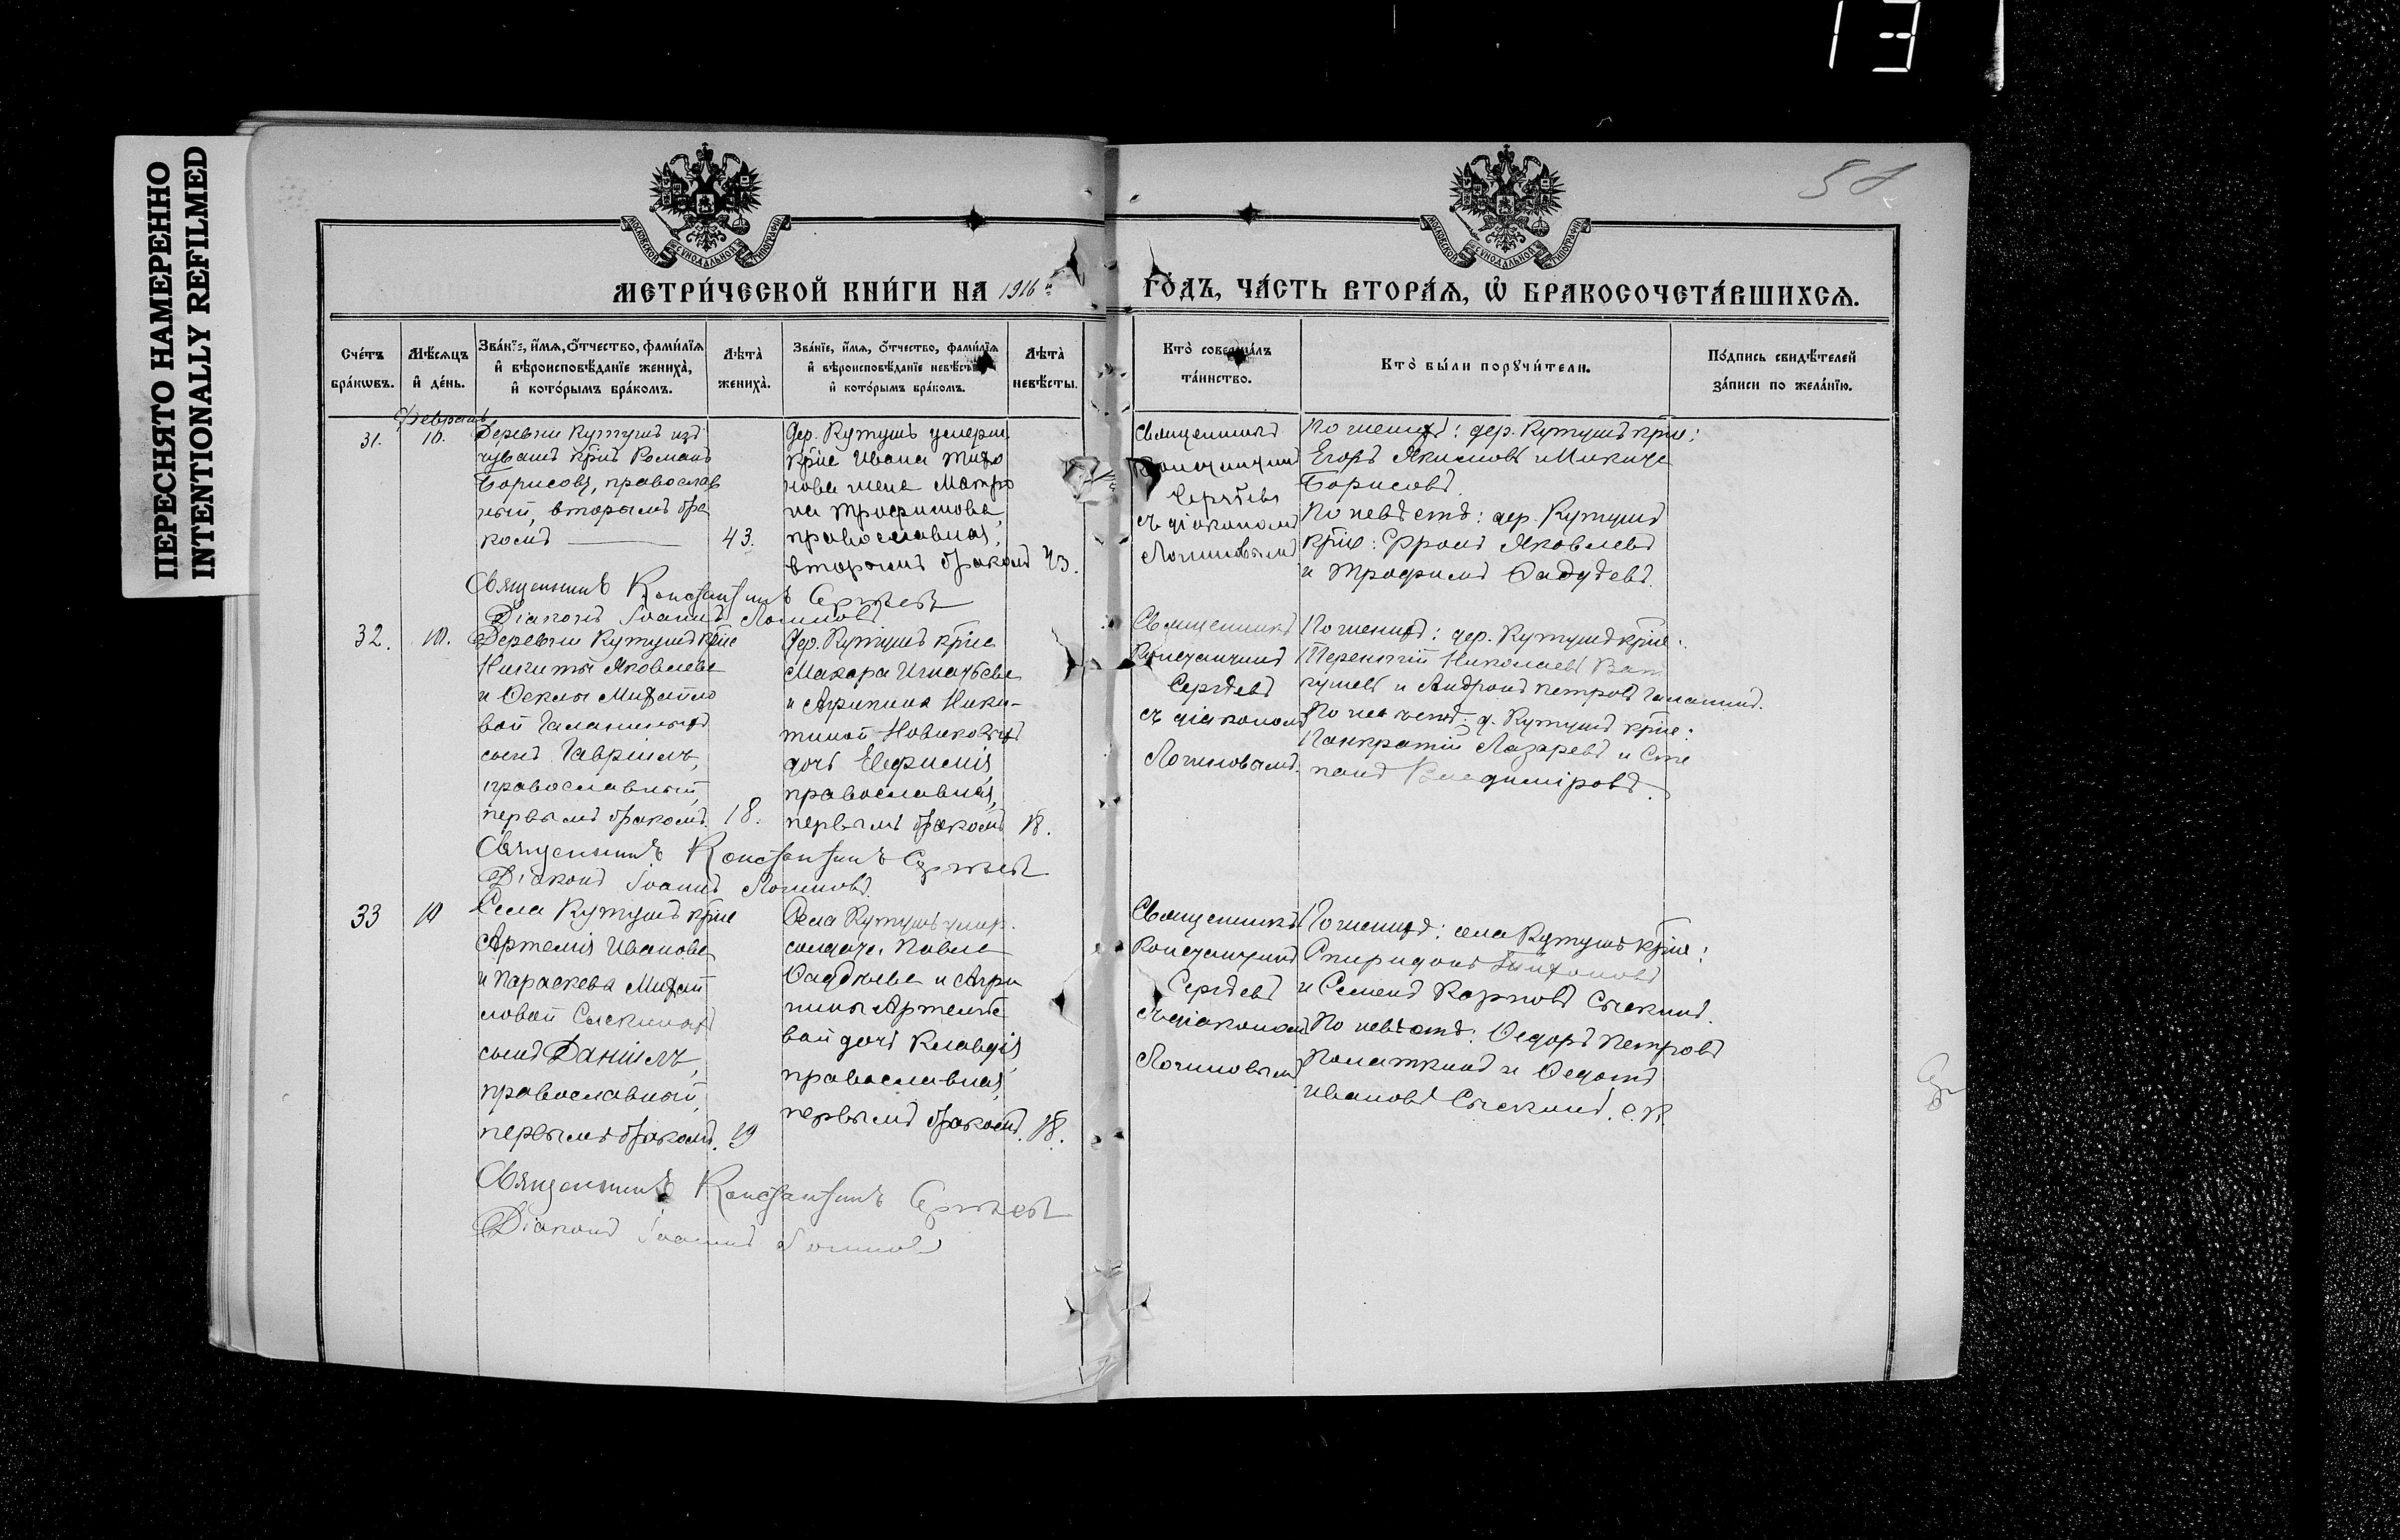 13
58
ПЕРЕСНЯТО НАМЕРЕННО
INTENTIONALLY REFILMED
МОСКОВСКОЙ СѴНОДАЛЬНОЙ ТИПОГРАФІИ
МОСКОВСКОЙ СѴНОДАЛЬНОЙ ТИПОГРАФІИ
МЕТРИ́ЧЕСКОЙ КНИ́ГИ НА 1916й
ГО́ДЪ, ЧА́СТЬ ВТОРА́Я, Ѡ҆ БРАКОСОЧЕТА́ВШИХСѦ.
Сче́тъ бра́кѡвъ.
Мѣ́сяцъ и҆ де́нь.
Зва́нїе, и҆́мя, ѻ҆́тчество, фами́лїя и҆ вѣроисповѣ́данїе жениха̀, и҆ кото́рымъ бра́комъ.
Лѣта̀ жениха̀.
Зва́нїе, и҆́мя, ѻ҆́тчество, фами́лїя и҆ вѣроисповѣ́данїе невѣ́сты и҆ кото́рымъ бра́комъ.
Лѣта̀ невѣ́сты.
Кто̀ соверша́лъ та́инство.
Кто̀ бы́ли порꙋчи́тели.
По́дпись свидѣ́телей за́писи по жела́нїю.
Февраль
31.
10.
Деревни Кутушъ изъ
чувашъ крнъ Романъ
Борисовъ, православ
ный, вторымъ бра
комъ
43.
Дер. Кутушъ умерш.
крне Ивана Тихо
нова жена Матро
на Трофимова,
православная,
вторымъ бракомъ
43.
Священникъ
Константинъ
Сергѣевъ
съ діакономъ
Логиновымъ
По женихѣ: дер. Кутушъ крне:
Егоръ Якимовъ и Никита
Борисовъ.
По невѣстѣ: дер. Кутушъ
крне: Фролъ Яковлевъ
и Трофимъ Ѳаддѣевъ.
Священникъ Константинъ Сергѣевъ
Діаконъ Іоаннъ Логиновъ
32.
10.
Деревни Кутушъ крне
Никиты Яковлева
и Ѳеклы Михайло
вой Галаниныхъ
сынъ Гавріилъ,
православный,
первымъ бракомъ.
18.
Дер. Кутушъ крне
Макара Игнатьева
и Агрипина Ники-
тиной Новиковыхъ
дочь Евфимія,
православная,
первымъ бракомъ
18.
Священникъ
Константинъ
Сергѣевъ
съ діакономъ
Логиновымъ.
По женихѣ: дер. Кутушъ крне:
Терентій Николаевъ
и Андронъ Петровъ Галанинъ.
По невѣстѣ: д. Кутушъ крне:
Панкратій Лазаревъ и Сте
панъ Владиміровъ.
Священникъ Константинъ Сергѣевъ
Діаконъ Іоаннъ Логиновъ.
33
10
Села Кутушъ крне
Артемія Иванова
и Параскева Михай
ловой Сыскиныхъ
сынъ Даніилъ,
православный,
первымъ бракомъ.
19
Села Кутушъ умер.
солдата Павла
Ѳаддѣева и Агри
пины Артемье
вой дочь Клавдія,
православная,
первымъ бракомъ.
18.
Священникъ
Константинъ
Сергѣевъ
съ діакономъ
Логиновымъ
По женихѣ: села Кутушъ крне:
Спиридонъ Тихоновъ
и Семенъ Карповъ Сыскинъ.
По невѣстѣ: Ѳедоръ Петровъ
Полаткинъ и Ѳедотъ
Ивановъ Сыскинъ. С. К.
Священникъ Константинъ Сергѣевъ
Діаконъ Іоаннъ Логиновъ